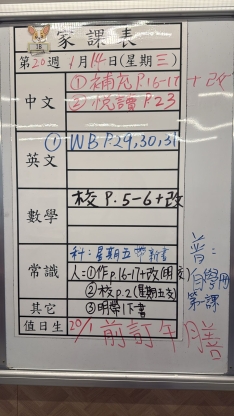 家課表
第20週 1月14日(星期三)
中文
①補充P.16-17+改
②悅讀P.23
英文
①WB P.29,30,31
數學
校 P.5-6+改
常識
科:星期五帶新書
人-①作P.16-17+改(明交)
②校P.2(星期五交)
其它
③明帶1下書
值日生
20/1前訂午膳
普:
自學冊
第一課